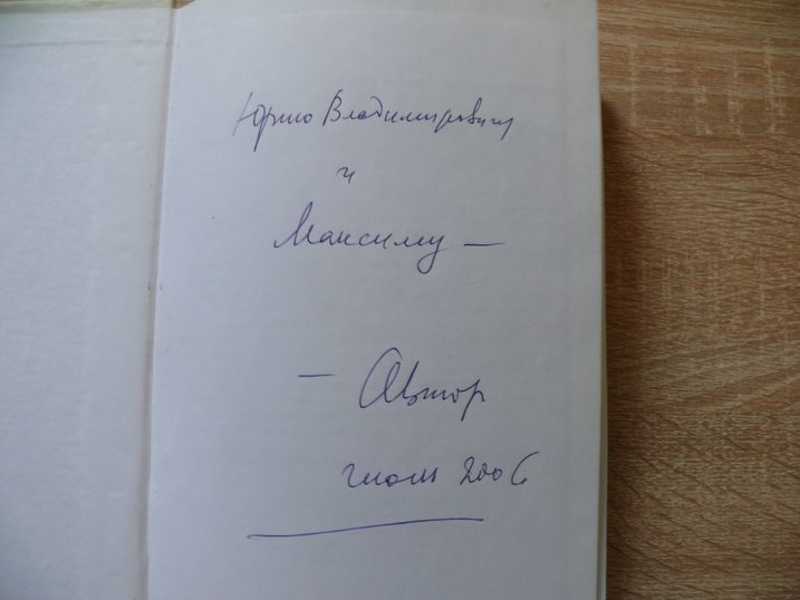 Юрию Владимировичу
и
Максиму —
— Автор
июль 2006